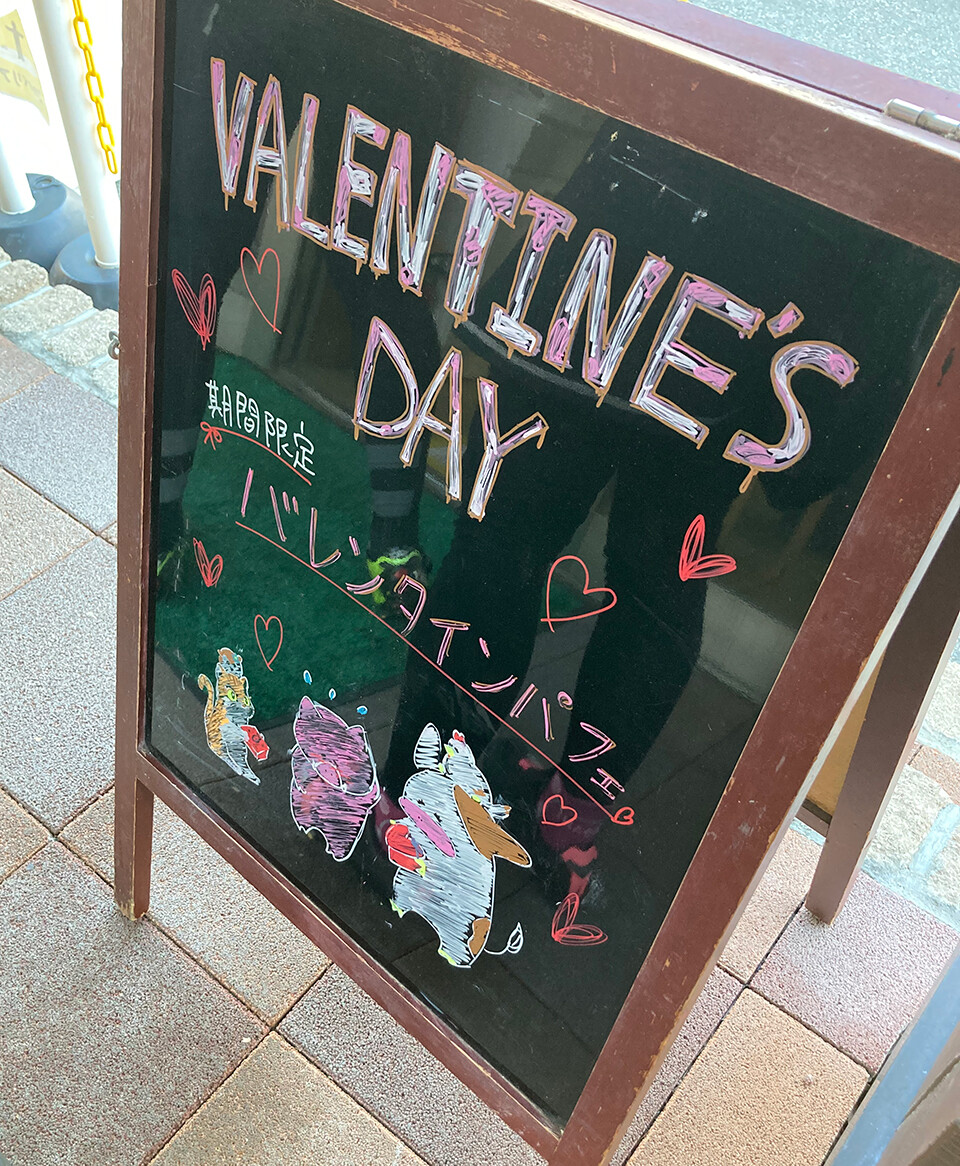 VALENTINE'S
DAY
期間限定
バレンタインパフェ